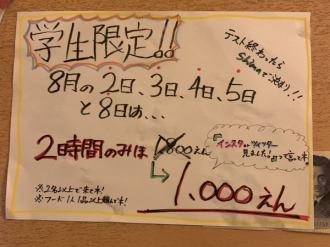 学生限定!!
テスト終わったら
Shimaで決まり!!
8月の2日、3日、4日、5日
と8日は...
2時間のみほ 1,800えん
インスタorツイッター
見ました!って言って来!
↳ 1,000えん
※2名以上で来て来!
※フード1人1品以上頼んで来!